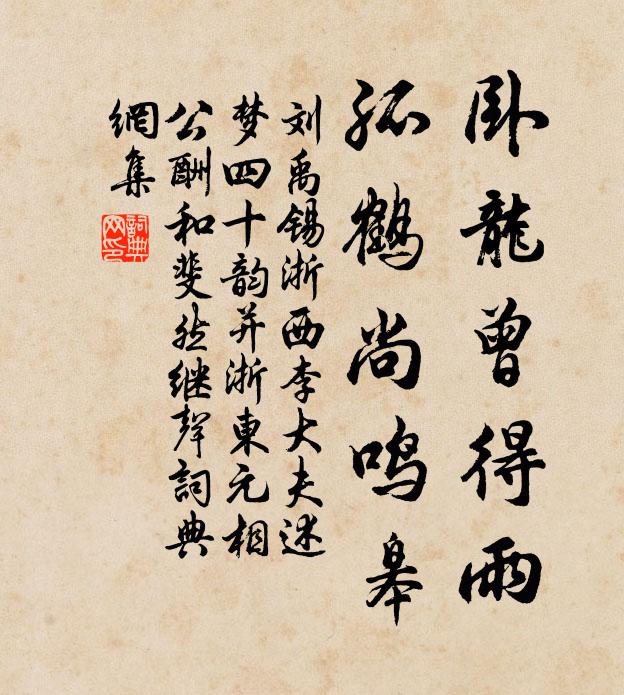 卧龍曾得雨
孤鶴尚鸣皋
刘禹锡浙西李大夫述
梦四十韵并浙東元相
公酬和斐然继聲詞典
網集
詞典
网印